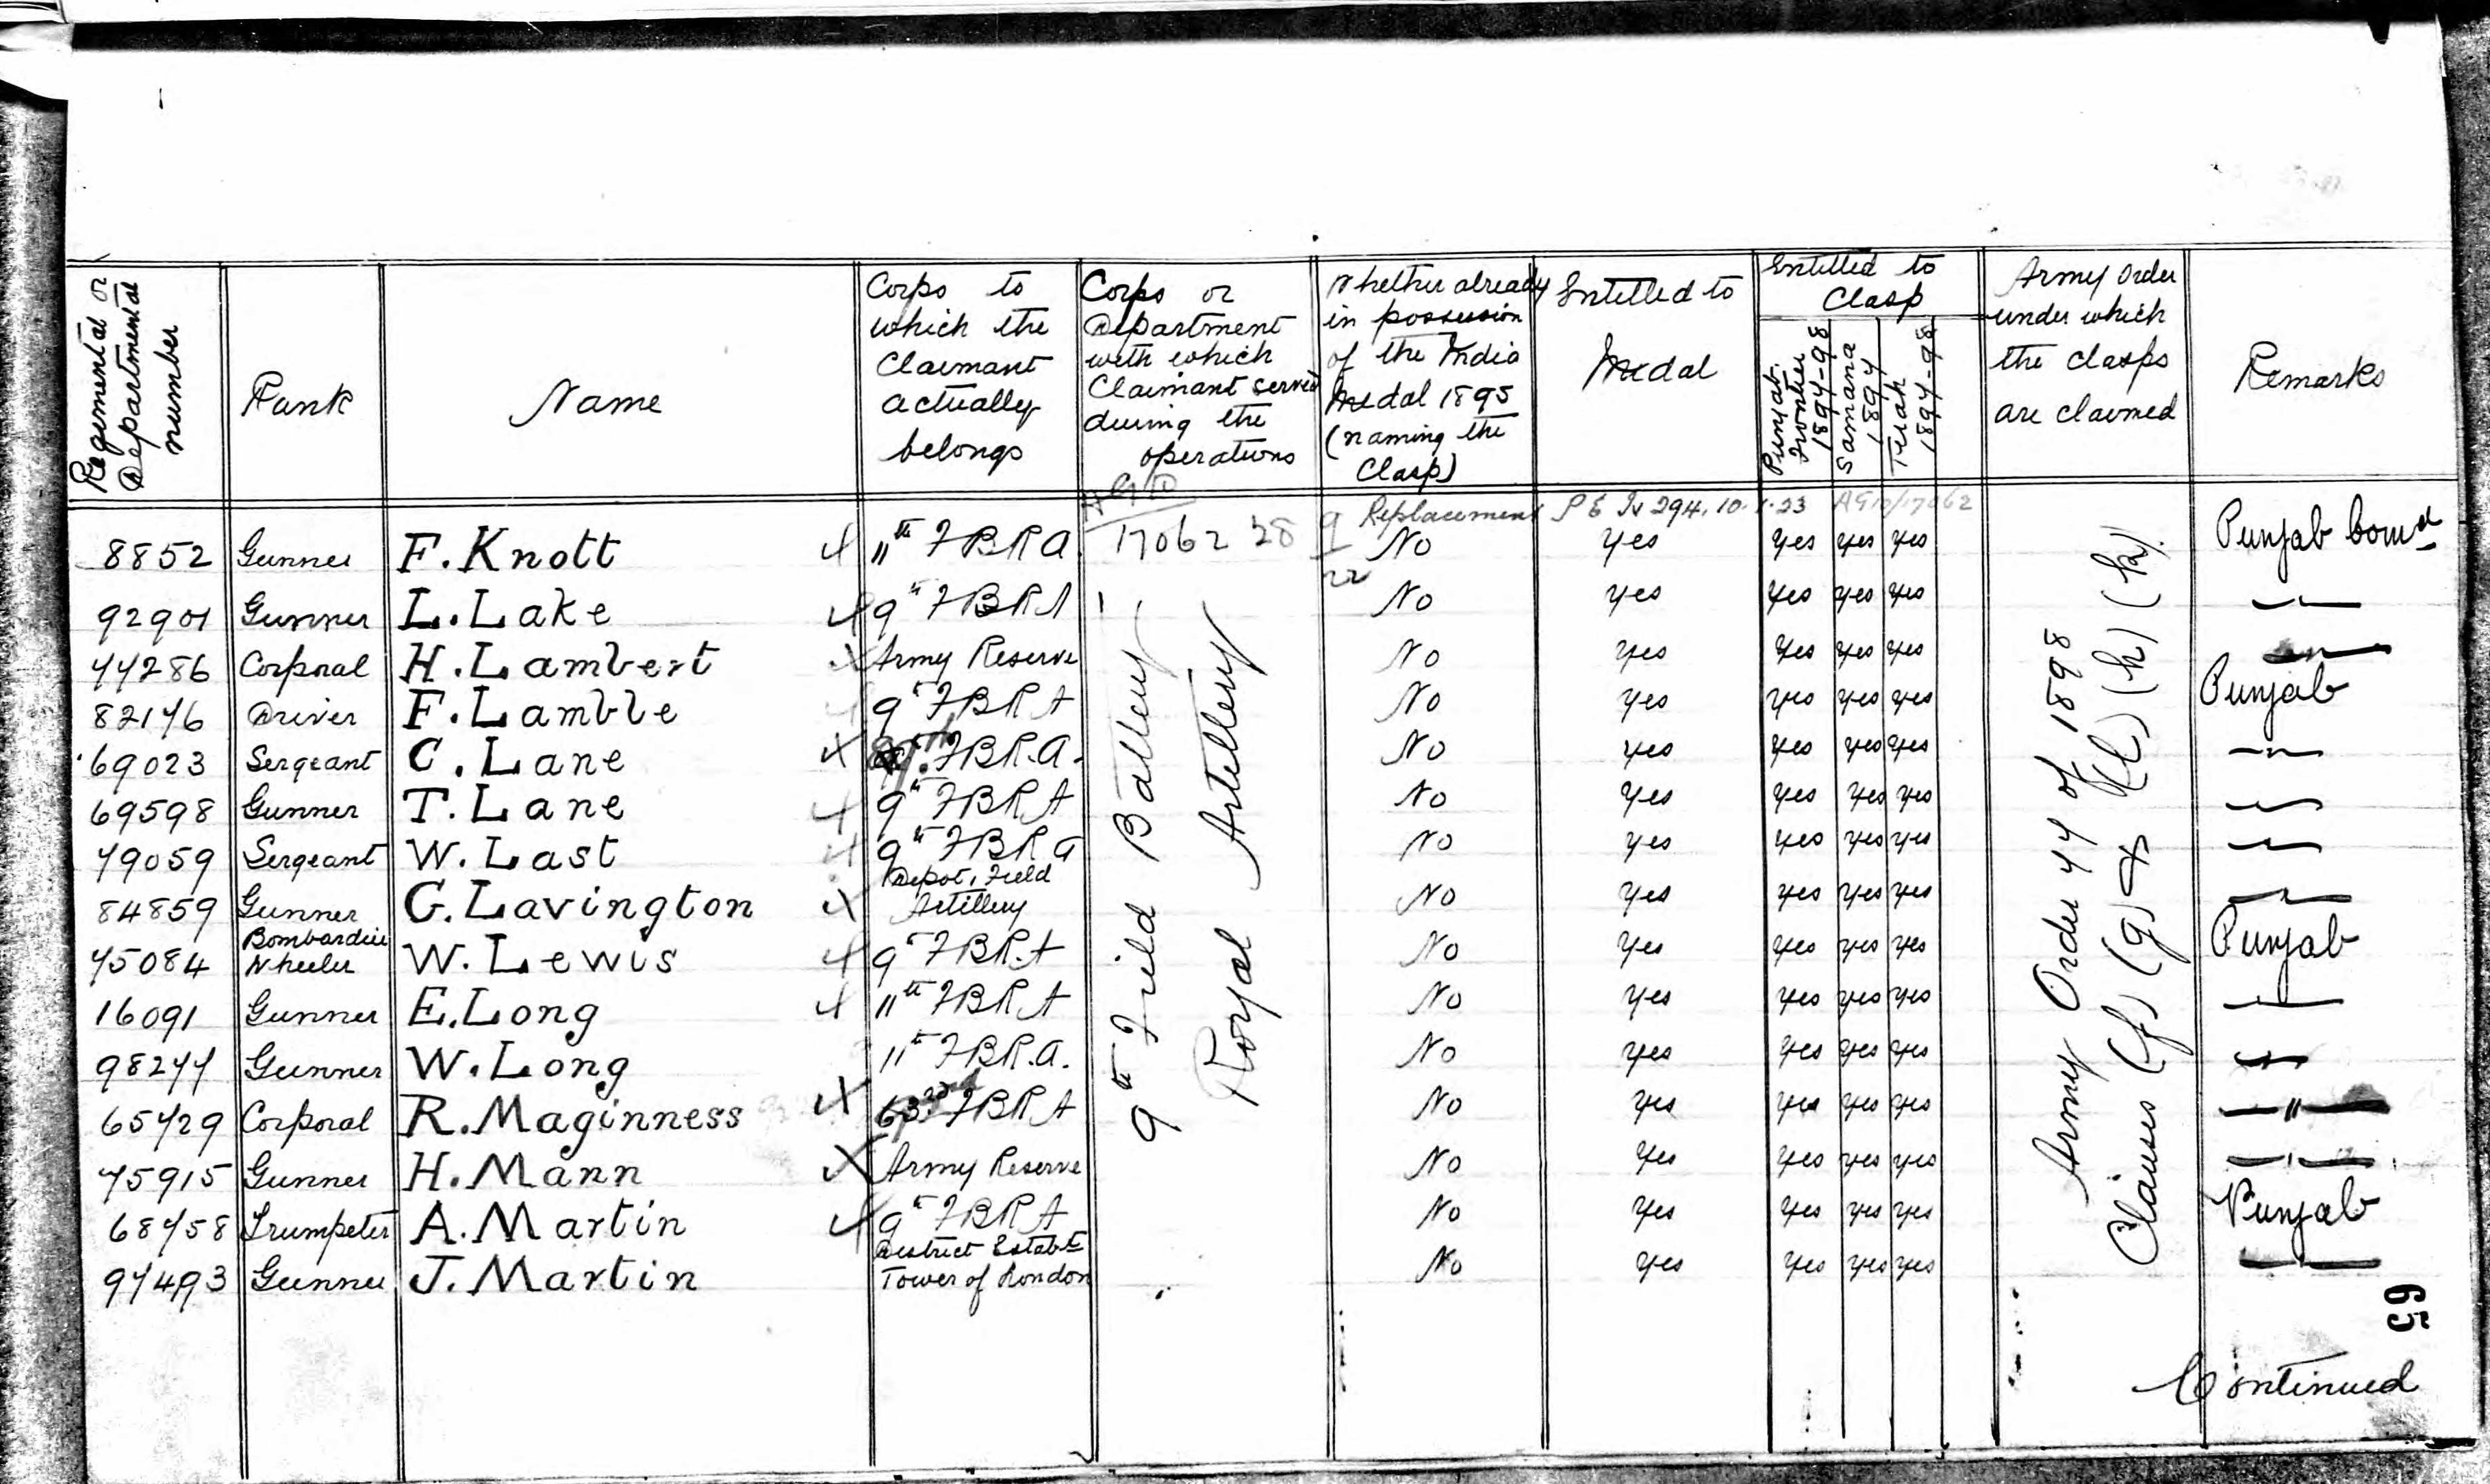 Regimental or Departmental number
Rank
Name
Corps to which the Claimant actually belongs
Corps or Department with which Claimant served during the operations
Whether already in possession of the India Medal 1895 (naming the Clasp)
Entitled to Medal
Entitled to Clasp
Punjab Frontier 1897-98
Samana 1897
Tirah 1897-98
Army Order under which the clasps are claimed
Remarks
Replacement
17062 28
8852 Gunner F. Knott 11th FBRA. No Yes Yes yes yes Punjab Comd
92901 Gunner L. Lake 9th FBRA No yes yes yes yes — " —
77286 Corporal H. Lambert Army Reserve No yes yes yes yes — " —
82176 Driver F. Lamble 9th FBRA No yes yes yes yes Punjab
69023 Sergeant C. Lane FBR.A. No yes yes yes yes — " —
69598 Gunner T. Lane 9th FBRA No yes yes yes yes — " —
79059 Sergeant W. Last 9th FBRA No yes yes yes yes — " —
84859 Gunner G. Lavington Depot, Field Artillery No yes yes yes yes — " —
75084 Bombardier Wheeler W. Lewis 9th FBR.A No yes yes yes yes Punjab
16091 Gunner E. Long 11th FBRA No yes yes yes yes — " —
98277 Gunner W. Long 11th FBR.A. No yes yes yes yes — " —
65729 Corporal R. Maginness 63rd FBRA No yes yes yes yes — " —
75915 Gunner H. Mann Army Reserve No yes yes yes yes — " —
68758 Trumpeter A. Martin 9th FBRA No yes yes yes yes Punjab
97493 Gunner J. Martin District Estabt Tower of London No yes yes yes yes — " —
9th Field Battery
Royal Artillery
Army Order 77 of 1898
Clauses (f) (g) & (l) (h) (k).
65
Continued